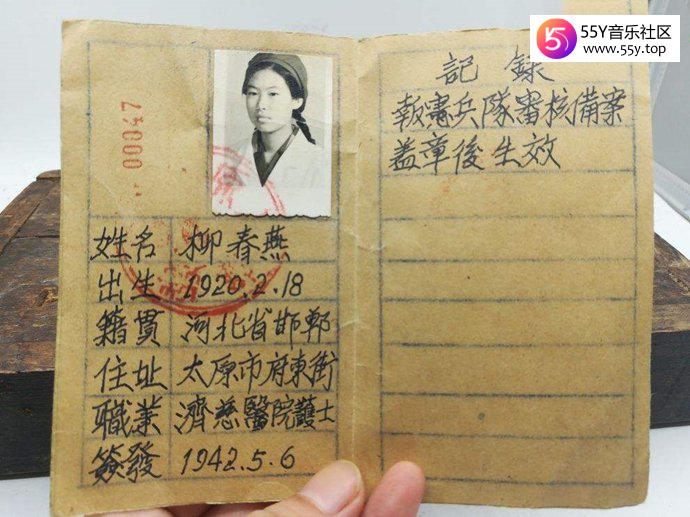 55Y音乐社区
www.55y.top
00047
姓名 柳春燕
出生 1920.2.18
籍貫 河北省邯鄲
住址 太原市府東街
職業 濟慈醫院護士
簽發 1942.5.6
記錄
報憲兵隊審核備案
盖章後生效